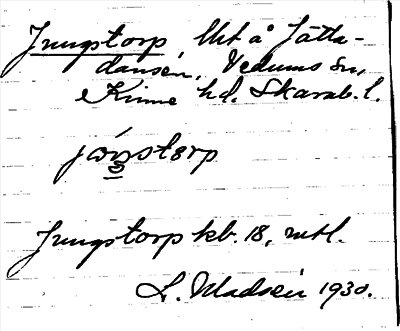 Jungstorp, Utä å Jätta-
dansen, Vedums sn,
Kinne hd. Skarab. l.
jωŋstɵrp
Jungstorp kb. 18, mtl.
L. Madsén 1930.